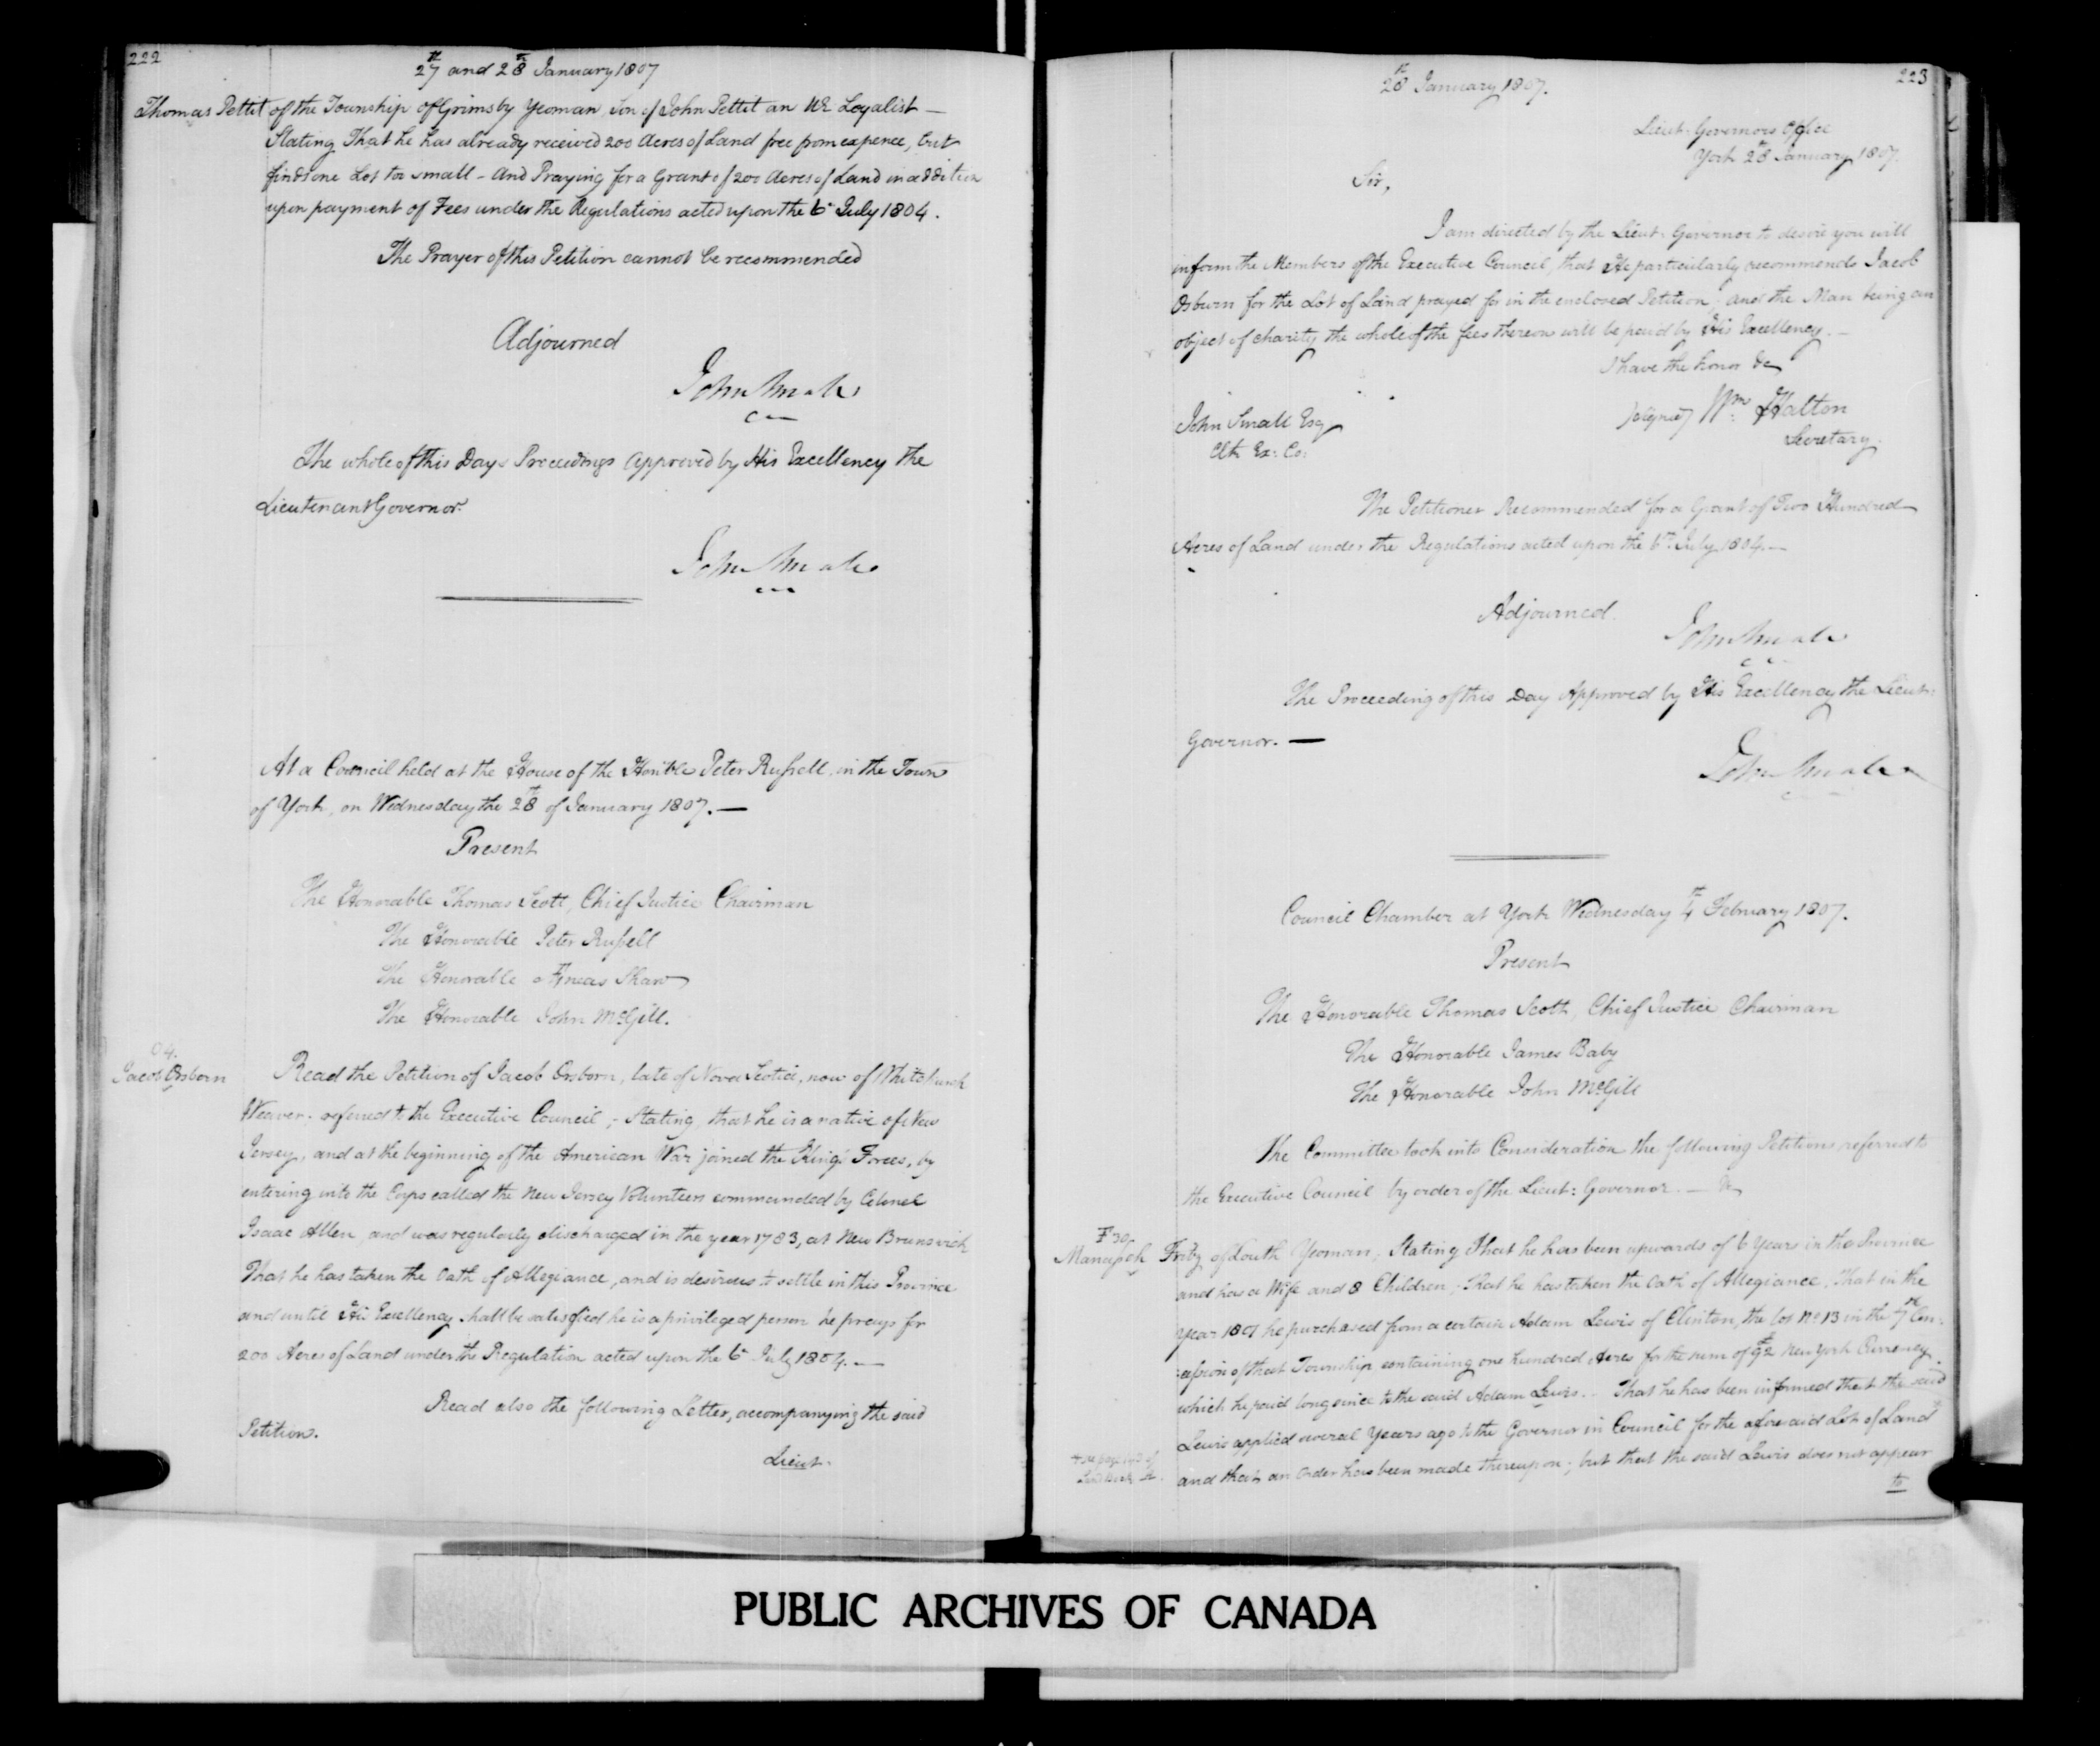 222
27th and 28th January 1807
Thomas Pettit of the Township of Grimsby Yeoman, Son of John Pettit an UE Loyalist —
Stating That he has already received 200 Acres of Land free from expence, but
finds one Lot too small - And Praying for a Grant of 200 Acres of Land in addition
upon payment of Fees under the Regulations acted upon the 6th July 1804.
The Prayer of this Petition cannot be recommended
Adjourned
John Small
The whole of this Days Proceedings Approved by His Excellency the
Lieutenant Governor.
John Small
At a Council held at the House of the Hon'ble Peter Russell, in the Town
of York, on Wednesday the 28th of January 1807. —
Present
The Honorable Thomas Scott, Chief Justice Chairman
The Honorable Peter Russell
The Honorable Æneas Shaw
The Honorable John McGill.
O 4.
Jacob Osborn
Read the Petition of Jacob Osborn, late of Nova Scotia, now of Whitchurch
Weaver. referred to the Executive Council; - Stating, that he is a native of New
Jersey, and at the beginning of the American War joined the King's Forces, by
entering into the Corps called the New Jersey Volunteers commanded by Colonel
Isaac Allen, and was regularly discharged in the year 1783, at New Brunswick
That he has taken the Oath of Allegiance, and is desirous to settle in this Province
and until His Excellency shall be satisfied he is a privileged person he prays for
200 Acres of Land under the Regulation acted upon the 6th July 1804. —
Read also the following Letter, accompanying the said
Petition.
Lieut.
223
28th January 1807.
Lieut. Governors Office
York 28th January 1807.
Sir,
I am directed by the Lieut. Governor to desire you will
inform the Members of the Executive Council, that He particularly recommends Jacob
Osburn for the Lot of Land prayed for in the enclosed Petition; and the Man being an
object of charity the whole of the fees thereon will be paid by His Excellency. —
I have the honor &c
(signed) Wm Halton
Secretary.
John Small Esqr
Clk Ex: Co:
The Petitioner Recommended for a Grant of Two Hundred
Acres of Land under the Regulations acted upon the 6th July 1804. —
Adjourned.
John Small
The Proceeding of this Day Approved by His Excellency the Lieut:
Governor. —
John Small
Council Chamber at York Wednesday 4th February 1807.
Present
The Honorable Thomas Scott, Chief Justice Chairman
The Honorable James Baby
The Honorable John McGill
The Committee took into Consideration the following Petitions referred to
the Executive Council by order of the Lieut: Governor. —
F 30
Manasseh Fritz of Louth Yeoman, Stating That he has been upwards of 6 Years in the Province
and has a Wife and 8 Children; That he has taken the Oath of Allegiance. That in the
Year 1801 he purchased from a certain Adam Lewis of Clinton, the lot No 13 in the 7th Con-
cession of that Township containing one hundred Acres for the sum of 92 New York Currency
which he paid long since to the said Adam Lewis. That he has been informed that the said
Lewis applied several Years ago to the Governor in Council for the aforesaid Lot of Land
and that an Order has been made thereupon; but that the said Lewis does not appear
to
PUBLIC ARCHIVES OF CANADA